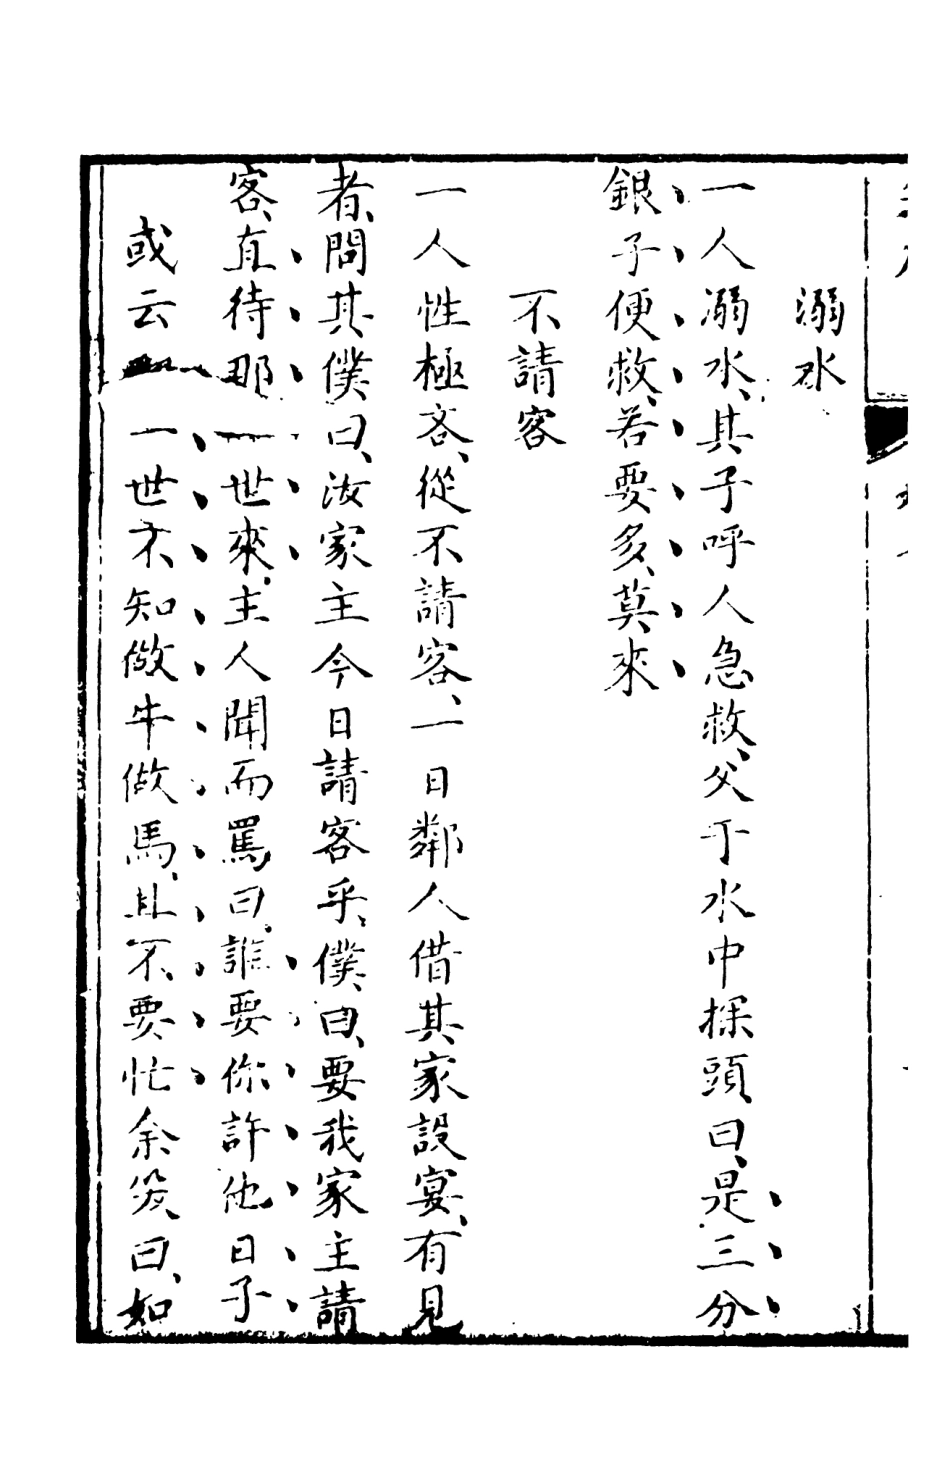 溺水
一人溺水、其子呼人急救、父于水中探頭曰、是三分
銀子便救、若要多、莫來
不請客
一人性極吝、從不請客、一日鄰人借其家設宴、有見
者、問其僕曰、汝家主今日請客乎、僕曰、要我家主請
客、直待那一世來、主人聞而罵曰、誰要你許他日子
或云一世不知做牛做馬、且不要忙余笑、曰、如